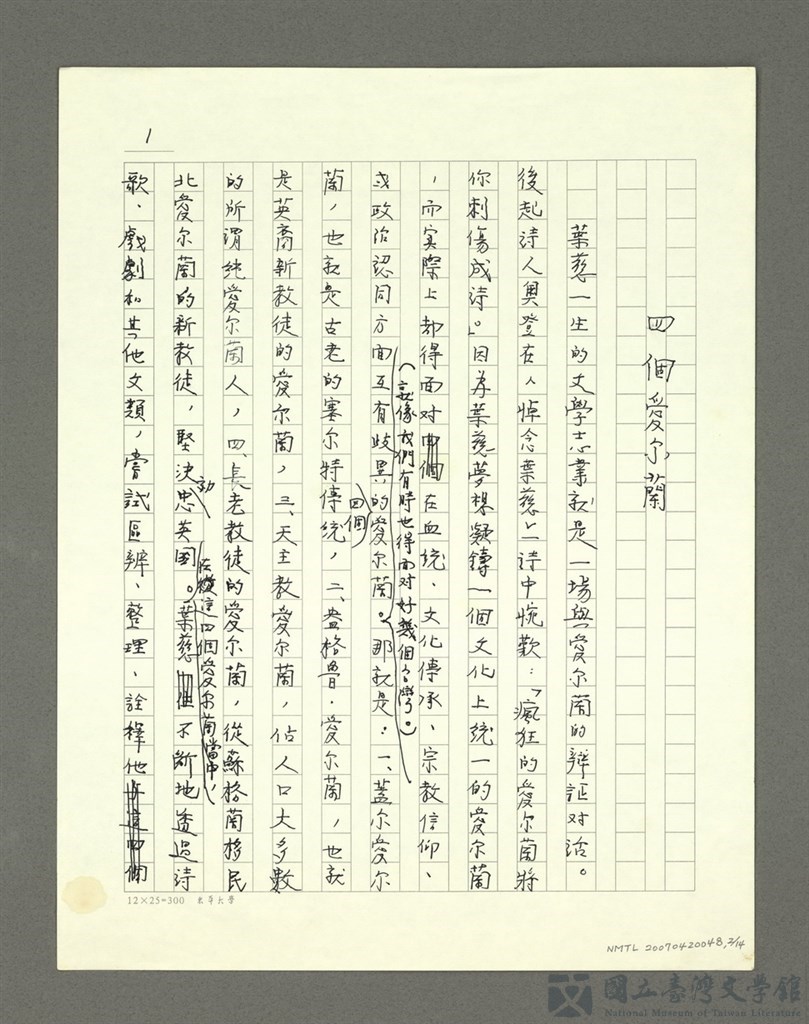 1
四個愛尔蘭
葉慈一生的文學志業就是一場與愛尔蘭的辯証對話。
後起詩人奧登在〈悼念葉慈〉一詩中惋歎：「瘋狂的愛尔蘭將
你刺傷成詩」。因為葉慈夢想凝鑄一個文化上統一的愛尔蘭
，而实際上却得面对四個在血統、文化傳承、宗教信仰、
（就像我們有時也得面对好幾個台灣。）
或政治認同方面互有歧異的愛尔蘭。那就是：一、蓋尔愛尔
四個
蘭，也就是古老的塞尔特傳統，二、盎格魯·愛尔蘭，也就
是英裔新教徒的愛尔蘭，三、天主教愛尔蘭，佔人口大多數
的所謂純愛尔蘭人，四、長老教徒的愛尔蘭，從蘇格蘭移民
在這四個愛尔蘭當中，
北愛尔蘭的新教徒，堅決忠英国。葉慈不斷地透過詩
効
歌、戲劇和其他文類，嘗試區辨、整理、詮釋他与這四個
12×25=300 東華大學
NMTL 20070420048, 2/14
國立臺灣文學館
National Museum of Taiwan Literature